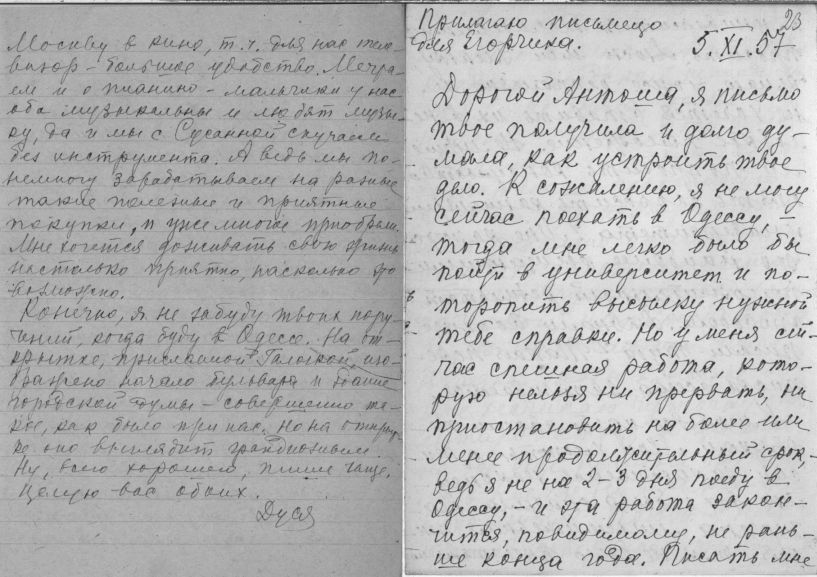 Москву в кино, т.ч. для нас теле-
визор – большое удобство. Мечта-
ем и о пианино – мальчики у нас
оба музыкальны и любят музы-
ку, да и мы с Сусанной скучаем
без инструмента. А ведь мы по-
немногу зарабатываем на разные
такие полезные и приятные
покупки, и уже многое приобрели.
Мне хочется доживать свою жизнь
настолько приятно, насколько это
возможно.
Конечно, я не забуду твоих пору-
чений, когда буду в Одессе. На от-
крытке, присланной Галочкой, изо-
бражено начало бульвара и здание
городской думы – совершенно та-
кое, как было при нас. Но на открыт-
ке оно выглядит грандиозным.
Ну, всего хорошего, пиши чаще.
Целую вас обоих.
Дуся
23
Прилагаю письмецо
для Егорчика.
5.XI.57
Дорогой Антоша, я письмо
твое получила и долго ду-
мала, как устроить твое
дело. К сожалению, я не могу
сейчас поехать в Одессу, –
тогда мне легко было бы
пойти в университет и по-
торопить высылку нужной
тебе справки. Но у меня сей-
час спешная работа, кото-
рую нельзя ни прервать, ни
приостановить на более или
менее продолжительный срок,
ведь я не на 2–3 дня поеду в
Одессу, – и эта работа закон-
чится, повидимому, не рань-
ше конца года. Писать мне